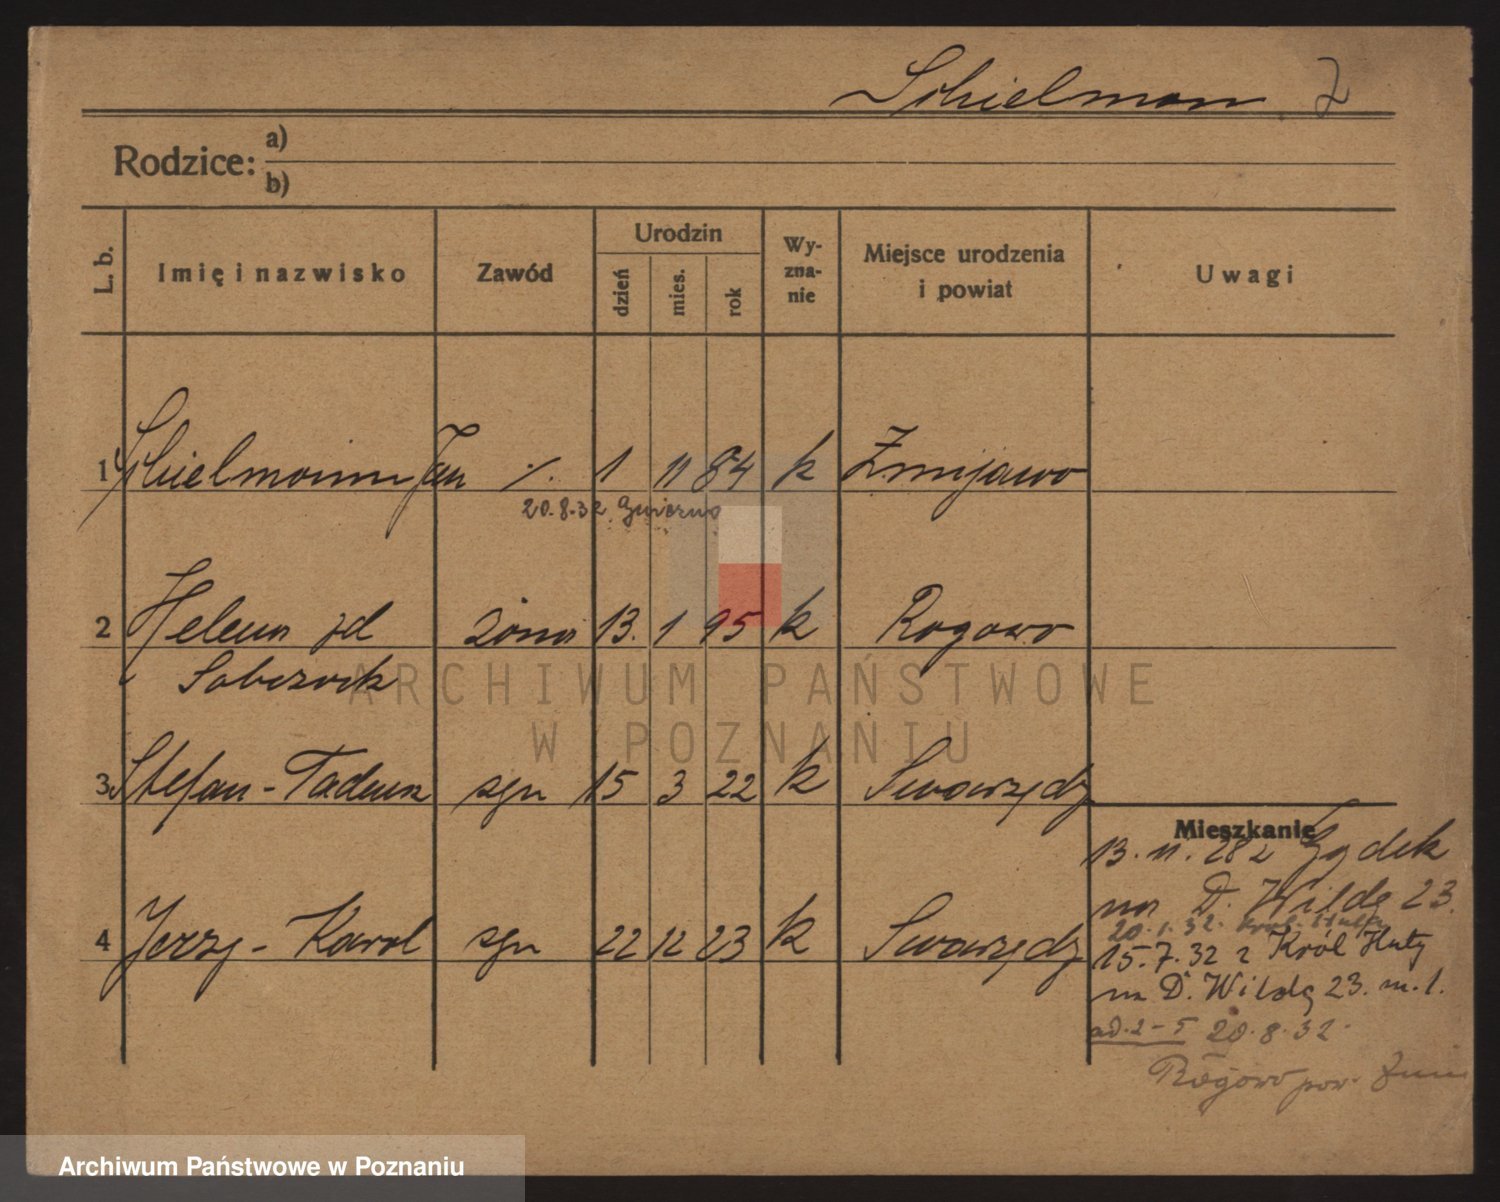 Schielmann Z
Rodzice: a)
b)
L. b.
Imię i nazwisko
Zawód
Urodzin
dzień
mies.
rok
Wy-
zna-
nie
Miejsce urodzenia
i powiat
Uwagi
1 Schielmann Jan ./. 1 11 84 k Żmijewo
20.8.32 Gniezno
2 Helena zd żona 13. 1 95 k Rogowo
Sobczak
3 Stefan-Tadeusz syn 15 3 22 k Swarzędz
Mieszkanie
13.11.28 z
na D. Wildę 23.
4 Jerzy-Karol syn 22 12 23 k Swarzędz
20.1.32. Król. Huta
15.7.32 z Król Huty
na D. Wildę 23. m. 1.
ad. 2-5 20.8.32.
Rogowo pow. Żnin
ARCHIWUM PAŃSTWOWE
W POZNANIU
Archiwum Państwowe w Poznaniu